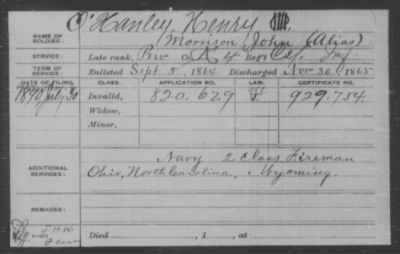 O'Hanley, Henry
NAME OF SOLDIER:
Morrison John (Alias)
SERVICE:
Late rank, Priv Co A 4 Regt Cal. Inf.
TERM OF SERVICE:
Enlisted Sept 5, 1864 Discharged Nov. 30, 1865
DATE OF FILING.
CLASS.
APPLICATION NO.
CERTIFICATE NO.
1890 July 30
Invalid,
820,629
929.754
Widow,
Minor,
ADDITIONAL SERVICES:
Navy 2 Class Fireman
Ohio, North Carolina, Wyoming.
REMARKS:
J.H.W.
Died , 1 , at